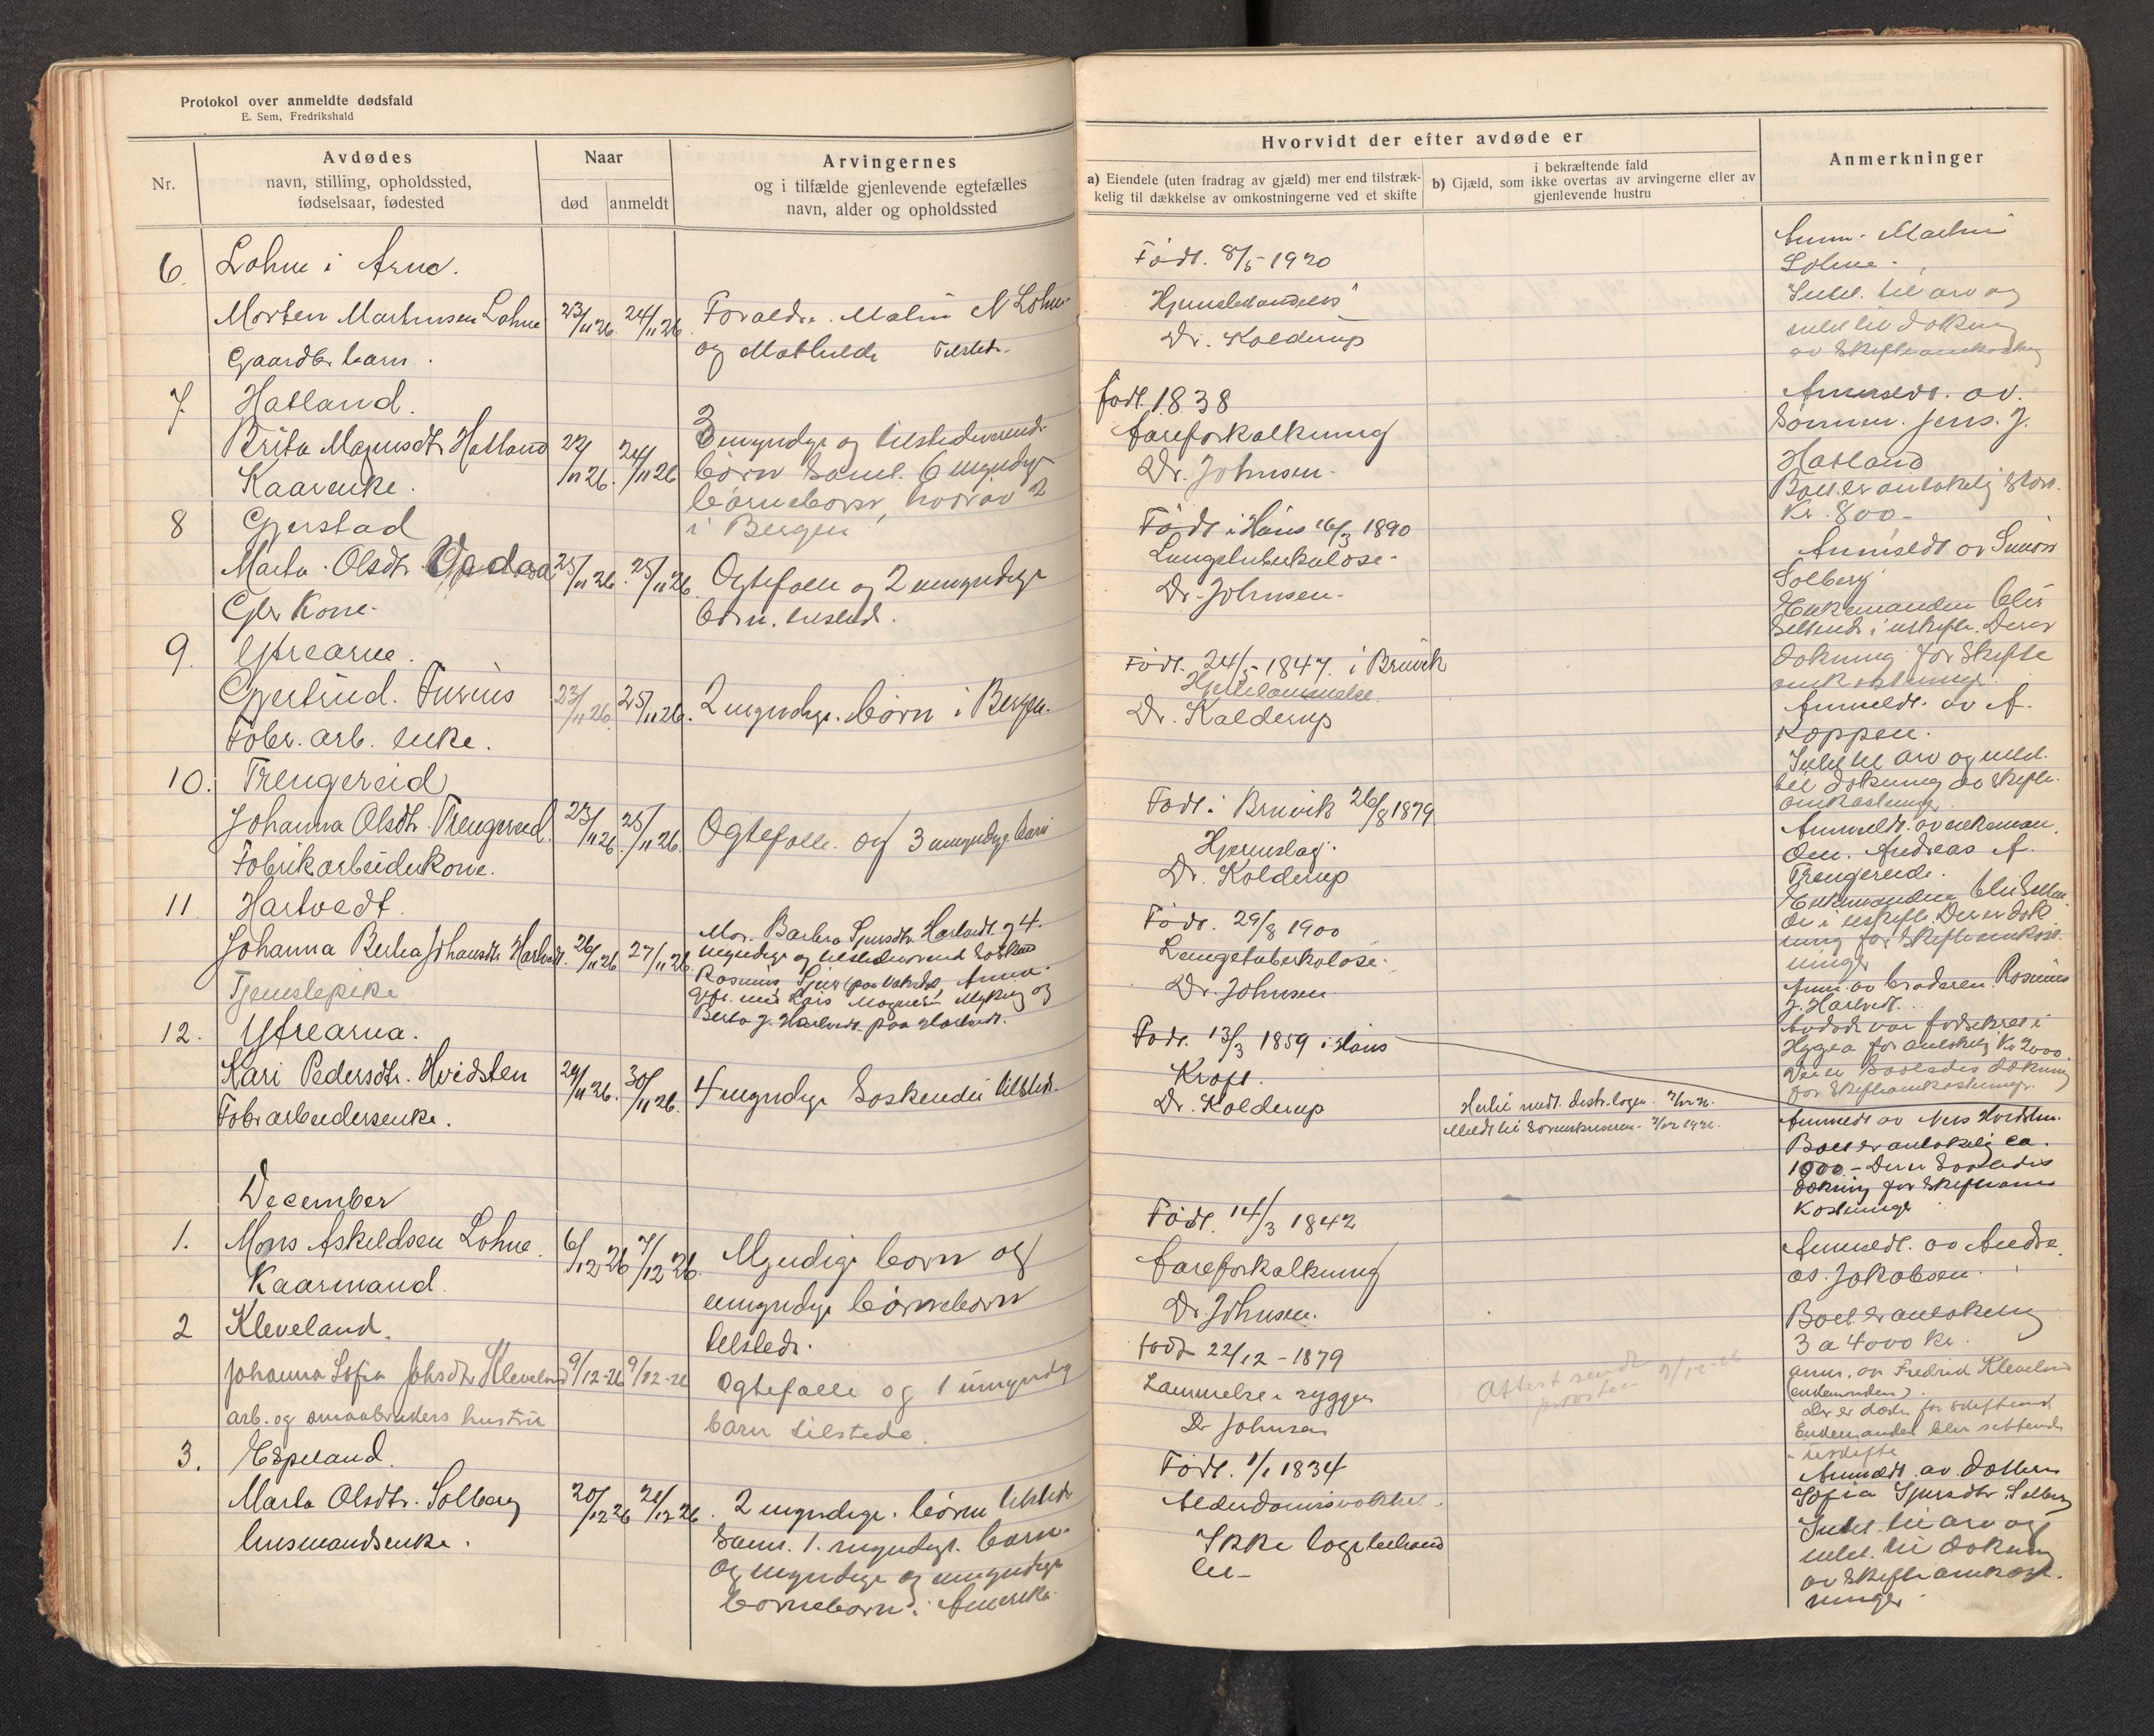 Protokol over anmeldte dødsfald
E. Sem, Fredrikshald
Nr.
Avdødes
navn, stilling, opholdssted,
fødselsaar, fødested
Naar
død anmeldt
Arvingernes
og i tilfælde gjenlevende egtefælles
navn, alder og opholdssted
6. Lohne i Arne.
Morten Martinsen Lohne 23/11 26. 24/11 26. Foraldre. Malin N Lohne
og Mathilde Tilstede.
Gaardbr. barn.
7. Hatland.
Brita Magnusdtr. Hatland 22/11 26. 24/11 26 3 myndige og tilstedeverende
børn samt 6 myndige
Kaarenke.
børneborn, hvorav 2
i Bergen
8 Gjerstad
Marta Olsdtr. 25/11 26. 25/11 26. Ogtefalle og 2 umyndige
Gbr Kone. born. tilsted.
9. Ytrearne.
Gjertrud. Furnis 23/11 26. 25/11 26. 2 myndige. børn i Bergen.
Fabr. arb. enke.
10. Trengereid
Johanna Olsdtr. Trengereid. 23/11 26. 25/11 26. Ogtefalle. og 3 umyndige barn
Fabrikarbeiderkone.
11. Hartvedt.
Johanna Berta Johansdtr. Hartvedt. 26/11 26 27/11 26. Mor. Barbra Sjursdtr. Hartvedt og 4.
myndige og tilstedeverend Søsken
Rasmus, Sjur paa Anna
Tjenestepike
Gift. med Lars Magnes. Myking og
Berta J. Hartvedt. paa Hartvedt.
12. Ytrearna.
Kari Pedersdtr. Hvidsten 29/11 26. 30/11 26. 4 myndige Soskende tilsted.
Fabr arbeidersenke.
December
1. Mons Askeldsen Lohne. 6/12 26 7/12 26. Myndige born og
Kaarmand umyndige børneborn
tilstede.
2 Kleveland.
Johanna Sofia Johsdtr. Kleveland 9/12-26 9/12-26 Ogtefalle og 1 umyndig
arb. og smaabrukers hustru barn tilstede.
3. Espeland.
Marta Olsdtr. Solberg 20/12 26 21/12 26. 2 myndige. børn tilsted
husmandsenke. samt. 1. myndigt. barn.
og myndige og umyndige
børneborn i Amerika.
Hvorvidt der efter avdøde er
a) Eiendele (uten fradrag av gjæld) mer end tilstræk-
kelig til dækkelse av omkostningerne ved et skifte
i bekræftende fald
b) Gjæld, som ikke overtas av arvingerne eller av
gjenlevende hustru
Anmerkninger
Født. 8/5-1920
Dr. Kolderup
Anm. Martin
Lohne.
Intet. til arv og
intet til dekning
av skifteomkostning
født. 1838
Aareforkalkning
Dr. Johnsen.
Anmeldt. av.
Sønnen. Jens. J.
Hatland
Boet er antakelig stort.
Kr. 800-
Født i Haus 16/3 1890
Lungetuberkulose.
Dr. Johnsen.
Anmeldt av
Solberg
Enkemanden blir
sittende i uskifte. Der er
dekning for skifte
omkostninger.
Født. 24/5-1847. i Bruvik
Hjertelammelse.
Dr. Kolderup
Anmeldt. av A.
Koppen.
Intet til arv og intet.
til dekning av skifte-
omkostninger.
Født i Bruvik 26/8 1879.
Hjerneslag.
Dr. Kolderup
Anmeldt. av enkeman
den. Andreas A.
Trengereide.
Enkemanden blir sitten
de i uskifte. Der er dek
ning for skifteomkost-
ninger
Født. 29/8 1900
Lungetuberkulose.
Dr. Johnsen
Anm. av broderen Rasmus
J. Hartvedt.
Avdøde var forsikret i
Hygea for antakelig Kr 2000.
Der er saaledes dekning
for skifteomkostninger.
Født. 13/3 1859 i Haus
Kraft.
Dr. Kolderup
Anmeldt av Nils Hvidsten.
Boet er antakelig ca.
1000.- Der er saaledes
dekning for skifteom
kostninger
Født. 14/3 1842
Aareforkalkning
Dr. Johnsen.
Anmeldt. av Andre
as. Jakobsen.
Boet er antakelig
3 a 4000 kr.
Født 22/12-1879
Lammelse i ryggen
Dr Johnsen
Attest sendt
prosten 9/12-26
anm. av Fredrik Kleveland
(enkemanden).
Der er dekn. for skifteomk
Enkemanden blir sittende
i uskifte
Født. 1/1 1834
Alderdomsvakhet.
Ikke lægebehand
let-
Anmeldt. av. datteren
Sofia Sjursdtr. Solberg
Intet. til arv og
intet. til dekning
av skifteomkost-
ninger